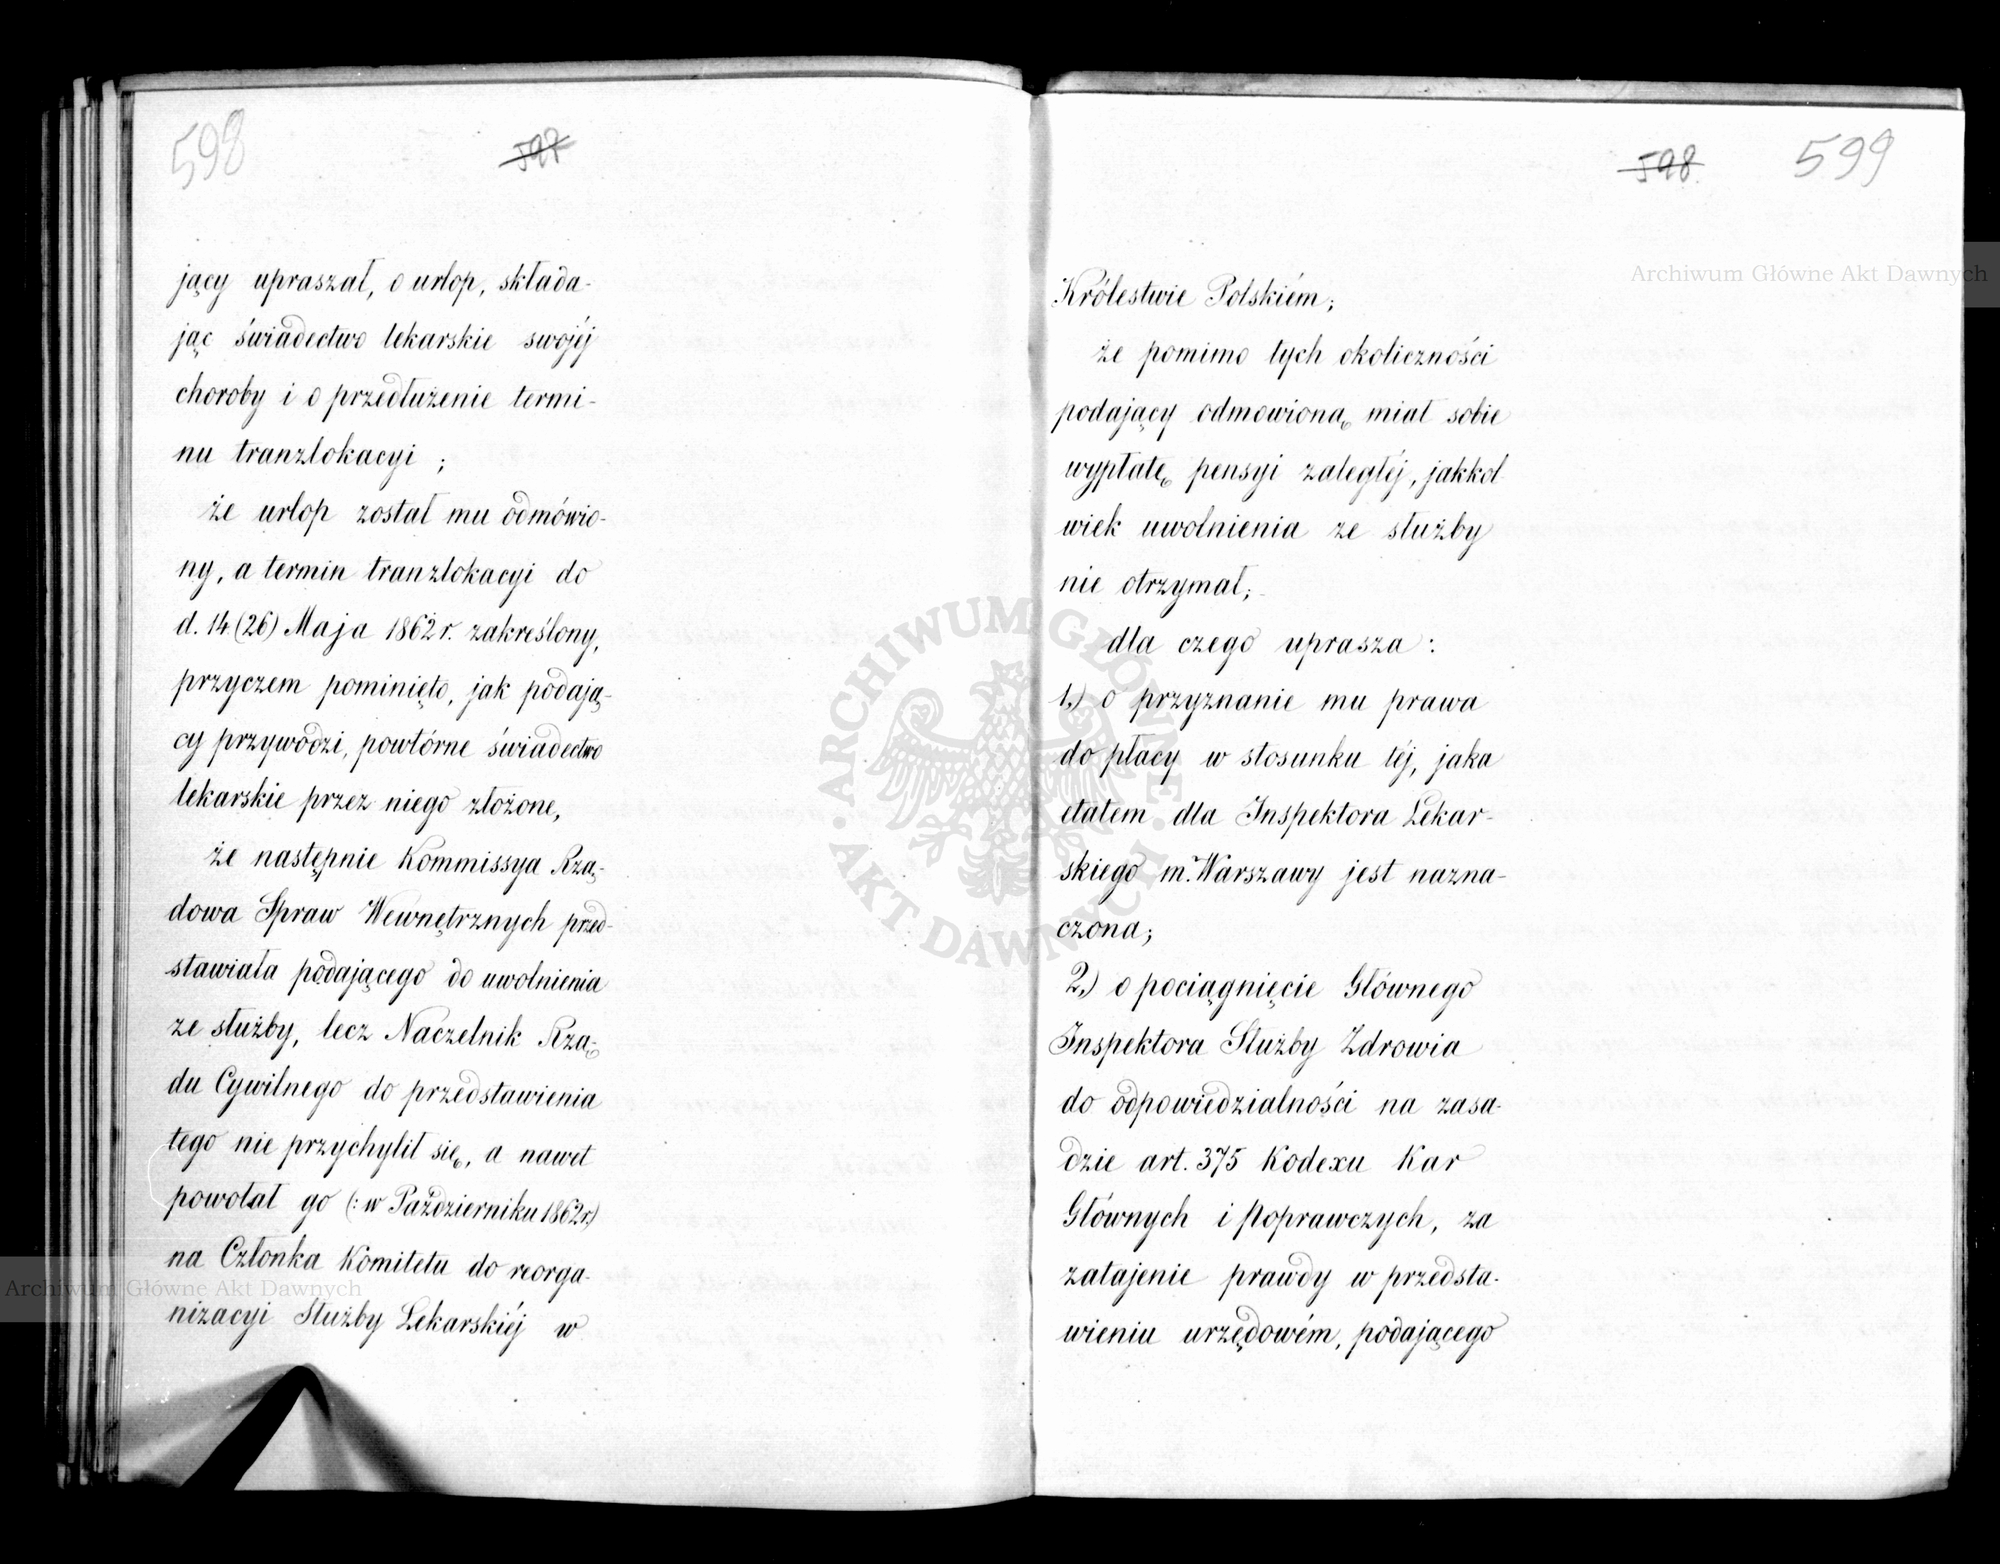 598
597
jący upraszał, o urlop, składa-
jąc świadectwo lekarskie swojéj
choroby i o przedłużenie termi-
nu tranzlokacyi ;
że urlop został mu odmówio-
ny, a termin tranzlokacyi do
d. 14 (26) Maja 1862 r. zakreślony,
przyczem pominięto, jak podają-
cy przywodzi, powtórne świadectwo
lekarskie przez niego złożone,
że następnie Kommissya Rzą-
dowa Spraw Wewnętrznych przed-
stawiała podającego do uwolnienia
ze służby, lecz Naczelnik Rzą-
du Cywilnego do przedstawienia
tego nie przychylił się, a nawet
powołał go (: w Październiku 1862 r.)
na Członka Komitetu do reorga-
nizacyi Służby Lekarskiéj w
598.
599
Królestwie Polskiém;
że pomimo tych okoliczności
podający odmowioną miał sobie
wypłatę pensyi zaległéj, jakkol-
wiek uwolnienia ze służby
nie otrzymał;
dla czego uprasza :
1.) o przyznanie mu prawa
do płacy w stosunku téj, jaka
etatem dla Inspektora Lekar-
skiego m. Warszawy jest nazna-
czona;
2.) o pociągnięcie Głównego
Inspektora Służby Zdrowia
do odpowiedzialności na zasa-
dzie art. 375 Kodexu Kar
Głównych i Poprawczych, za
zatajenie prawdy w przedsta-
wieniu urzędowém, podającego
Archiwum Główne Akt Dawnych
ARCHIWUM GŁÓWNE · AKT DAWNYCH ·
Archiwum Główne Akt Dawnych